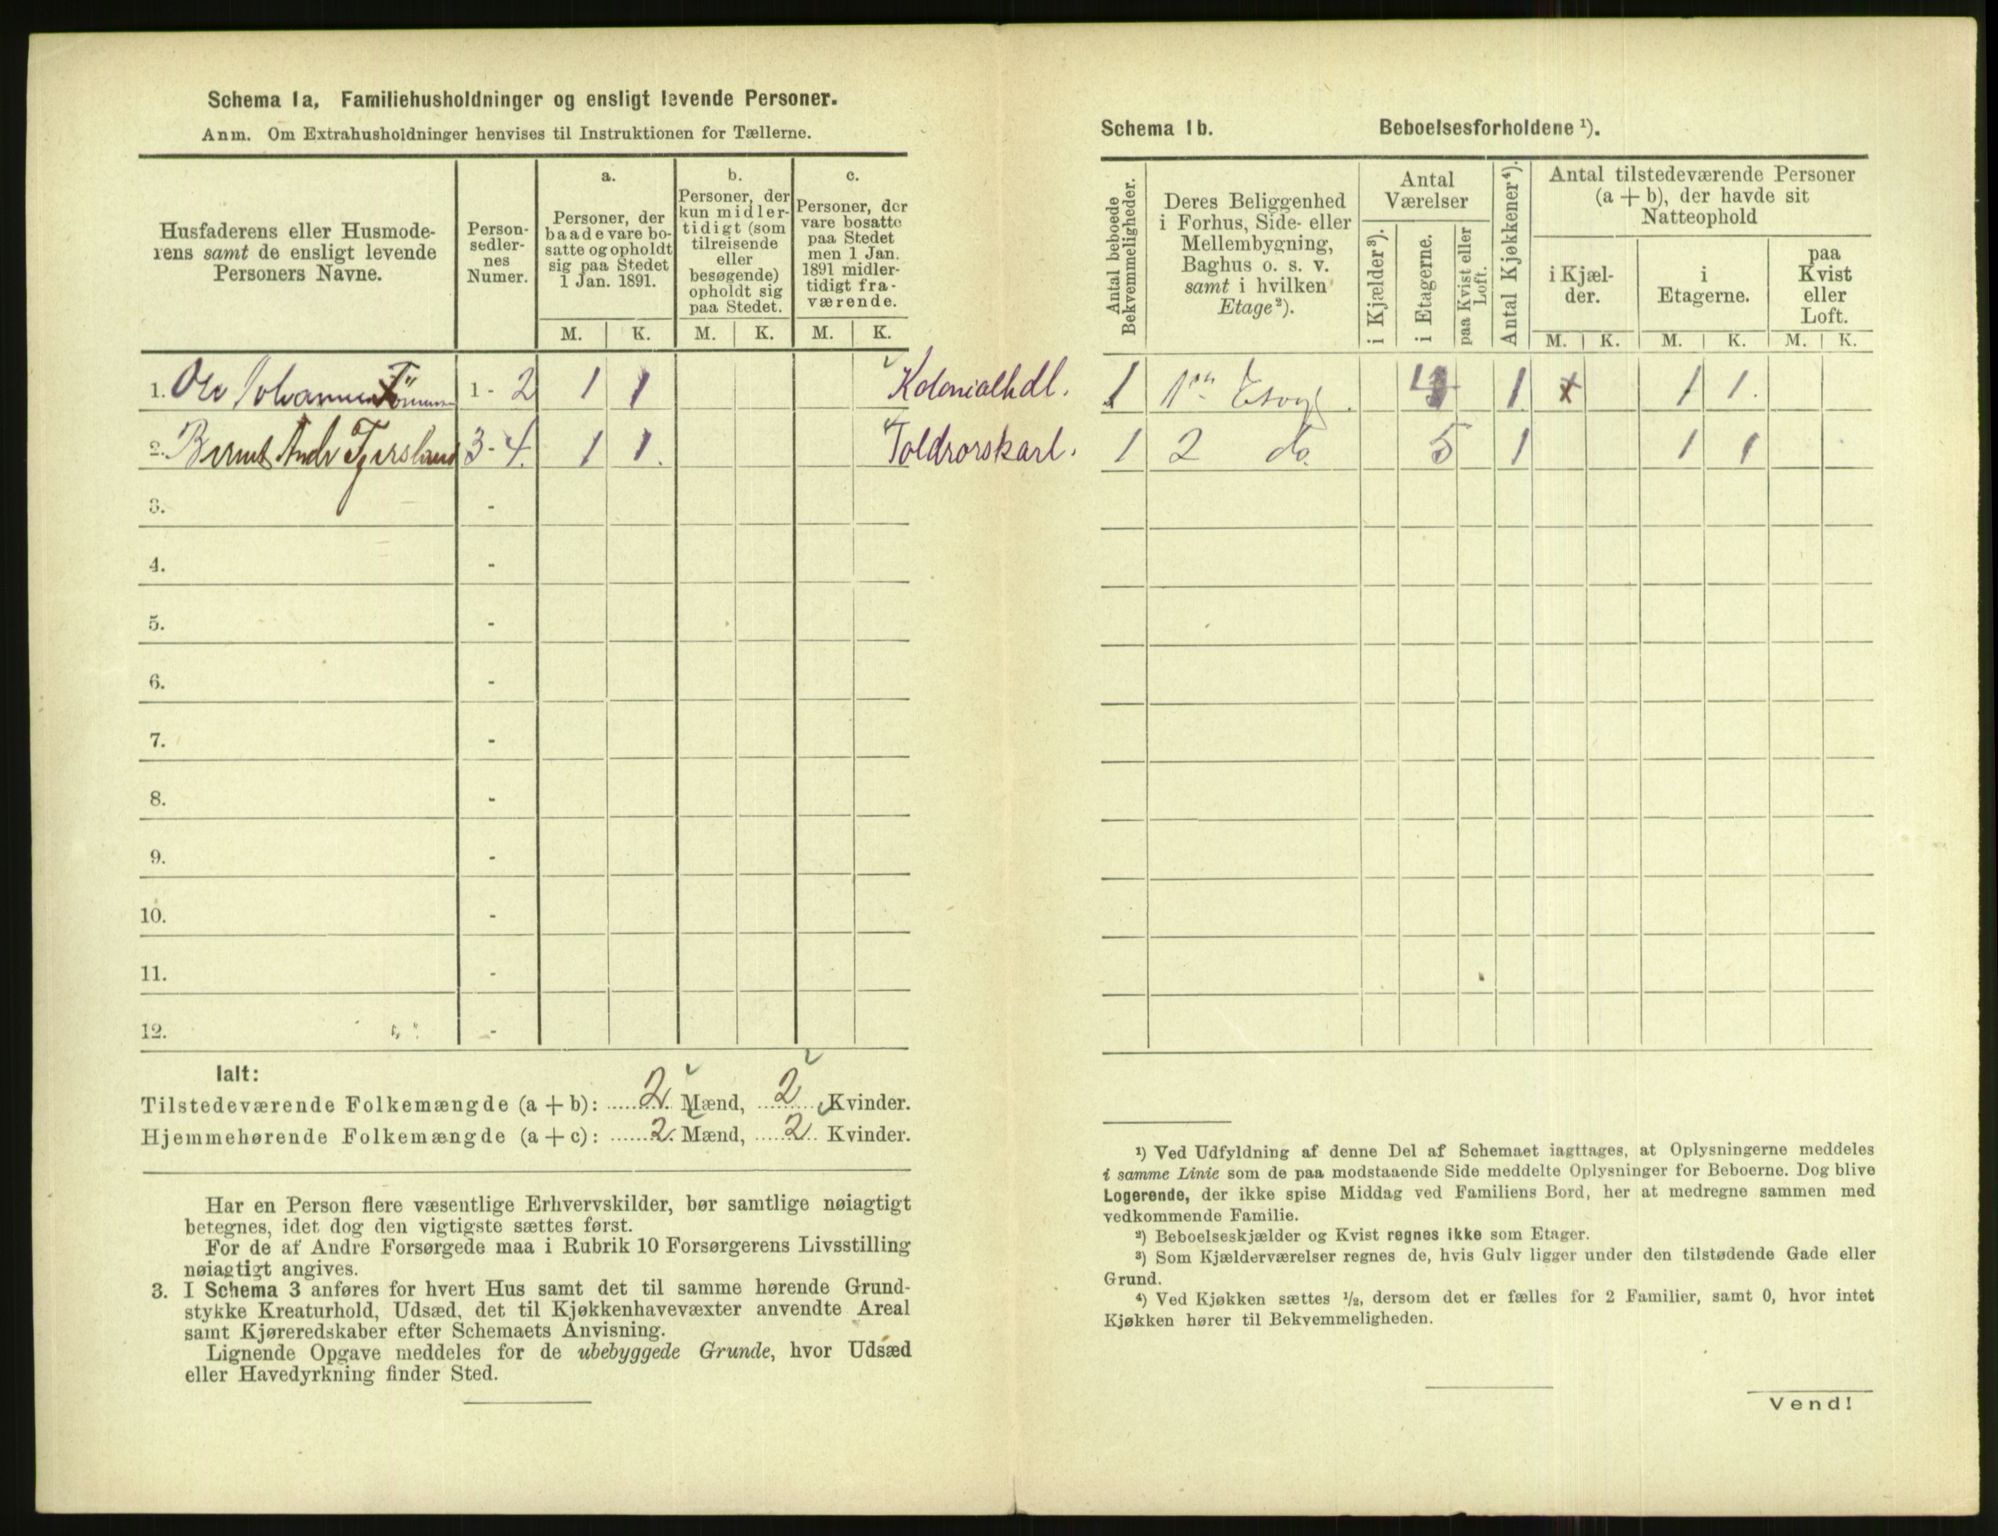 Schema 1a, Familiehusholdninger og ensligt levende Personer.
Anm. Om Extrahusholdninger henvises til Instruktionen for Tællerne.
Husfaderens eller Husmode-
rens samt de ensligt levende
Personers Navne.
Person-
sedler-
nes
Numer.
a.
Personer, der
baade vare bo-
satte og opholdt
sig paa Stedet
1 Jan. 1891.
b.
Personer, der
kun midler-
tidigt (som
tilreisende
eller
besøgende)
opholdt sig
paa Stedet.
c.
Personer, der
vare bosatte
paa Stedet
men 1 Jan.
1891 midler-
tidigt fra-
værende.
M. K. M. K. M. K.
1. Ole Johannes 1 - 2 1 1 Kolonialhdl.
2. Bernt Andr 3 - 4. 1 1. Toldrorskarl.
3. -
4. -
5. -
6. -
7. -
8. -
9. -
10. -
11. -
12. -
Ialt:
Tilstedeværende Folkemængde (a + b): 2. Mænd, 2 Kvinder.
Hjemmehørende Folkemængde (a + c): 2. Mænd, 2 Kvinder.
Har en Person flere væsentlige Erhvervskilder, bør samtlige nøiagtigt
betegnes, idet dog den vigtigste sættes først.
For de af Andre Forsørgede maa i Rubrik 10 Forsørgerens Livsstilling
nøiagtigt angives.
3. I Schema 3 anføres for hvert Hus samt det til samme hørende Grund-
stykke Kreaturhold, Udsæd, det til Kjøkkenhavevæxter anvendte Areal
samt Kjøreredskaber efter Schemaets Anvisning.
Lignende Opgave meddeles for de ubebyggede Grunde, hvor Udsæd
eller Havedyrkning finder Sted.
Schema 1b. Beboelsesforholdene ¹).
Antal beboede
Bekvemmeligheder.
Deres Beliggenhed
i Forhus, Side- eller
Mellembygning,
Baghus o. s. v.
samt i hvilken
Etage²).
Antal
Værelser
i Kjælder³).
i Etagerne.
paa Kvist eller
Loft.
Antal Kjøkkener⁴).
Antal tilstedeværende Personer
(a + b), der havde sit
Natteophold
i Kjæl-
der.
i
Etagerne.
paa
Kvist
eller
Loft.
M. K. M. K. M. K.
1 1 1 1 1.
1 2 do. 5 1 1 1
¹) Ved Udfyldning af denne Del af Schemaet iagttages, at Oplysningerne meddeles
i samme Linie som de paa modstaaende Side meddelte Oplysninger for Beboerne. Dog blive
Logerende, der ikke spise Middag ved Familiens Bord, her at medregne sammen med
vedkommende Familie.
²) Beboelseskjælder og Kvist regnes ikke som Etager.
³) Som Kjælderværelser regnes de, hvis Gulv ligger under den tilstødende Gade eller
Grund.
⁴) Ved Kjøkken sættes ½, dersom det er fælles for 2 Familier, samt 0, hvor intet
Kjøkken hører til Bekvemmeligheden.
Vend!